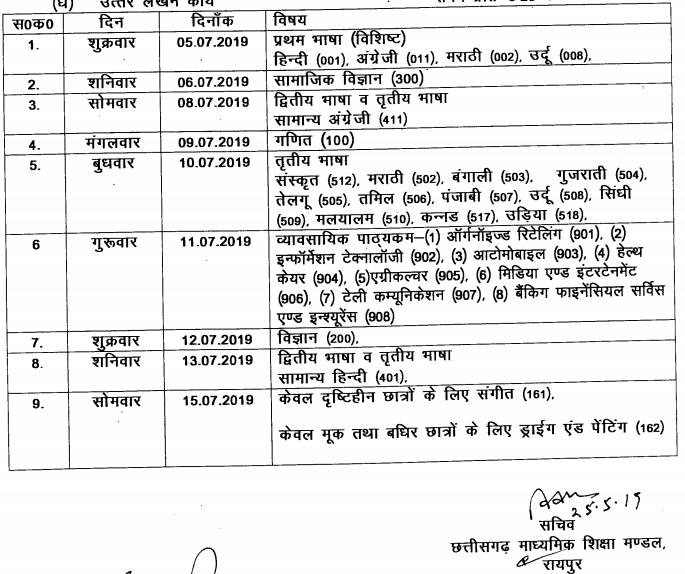 (घ) उत्तर लेखन कार्य
स०क० दिन दिनाँक विषय
1. शुक्रवार 05.07.2019 प्रथम भाषा (विशिष्ट)
हिन्दी (001), अंग्रेजी (011), मराठी (002), उर्दू (008),
2. शनिवार 06.07.2019 सामाजिक विज्ञान (300)
3. सोमवार 08.07.2019 द्वितीय भाषा व तृतीय भाषा
सामान्य अंग्रेजी (411)
4. मंगलवार 09.07.2019 गणित (100)
5. बुधवार 10.07.2019 तृतीय भाषा
संस्कृत (512), मराठी (502), बंगाली (503), गुजराती (504),
तेलगू (505), तमिल (506), पंजाबी (507), उर्दू (508), सिंधी
(509), मलयालम (510), कन्नड (517), उड़िया (518),
6 गुरूवार 11.07.2019 व्यावसायिक पाठ्यकम–(1) ऑर्गनॉइज्ड रिटेलिंग (901), (2)
इन्फॉर्मेशन टेक्नालॉजी (902), (3) आटोमोबाइल (903), (4) हेल्थ
केयर (904), (5)एग्रीकल्चर (905), (6) मिडिया एण्ड इंटरटेनमेंट
(906), (7) टेली कम्यूनिकेशन (907), (8) बैंकिग फाइनेंसियल सर्विस
एण्ड इन्श्यूरेंस (908)
7. शुक्रवार 12.07.2019 विज्ञान (200),
8. शनिवार 13.07.2019 द्वितीय भाषा व तृतीय भाषा
सामान्य हिन्दी (401),
9. सोमवार 15.07.2019 केवल दृष्टिहीन छात्रों के लिए संगीत (161),
केवल मूक तथा बधिर छात्रों के लिए ड्राईग एंड पेंटिंग (162)
25.5.19
सचिव
छत्तीसगढ़ माध्यमिक शिक्षा मण्डल,
रायपुर